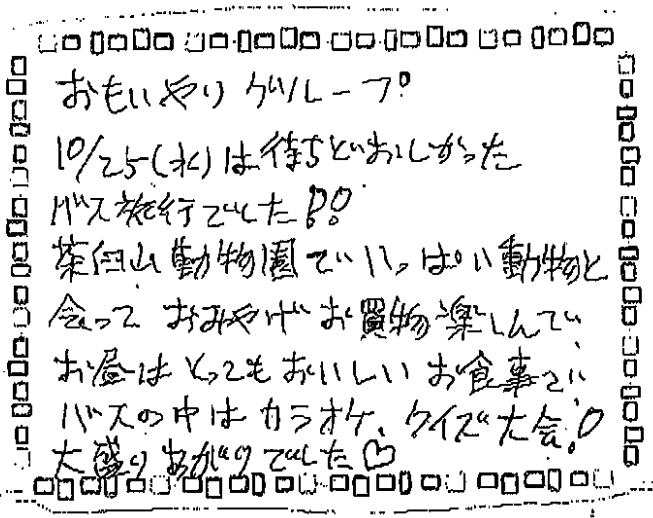 おもいやりグループ
10/25(水)は待ちどおしかった
バス旅行でした!!
茶臼山動物園でいっぱい動物と
会って おみやげお買物楽しんで
お昼はとってもおいしいお食事で
バスの中はカラオケ、クイズ大会!
大盛りあがりでした♡